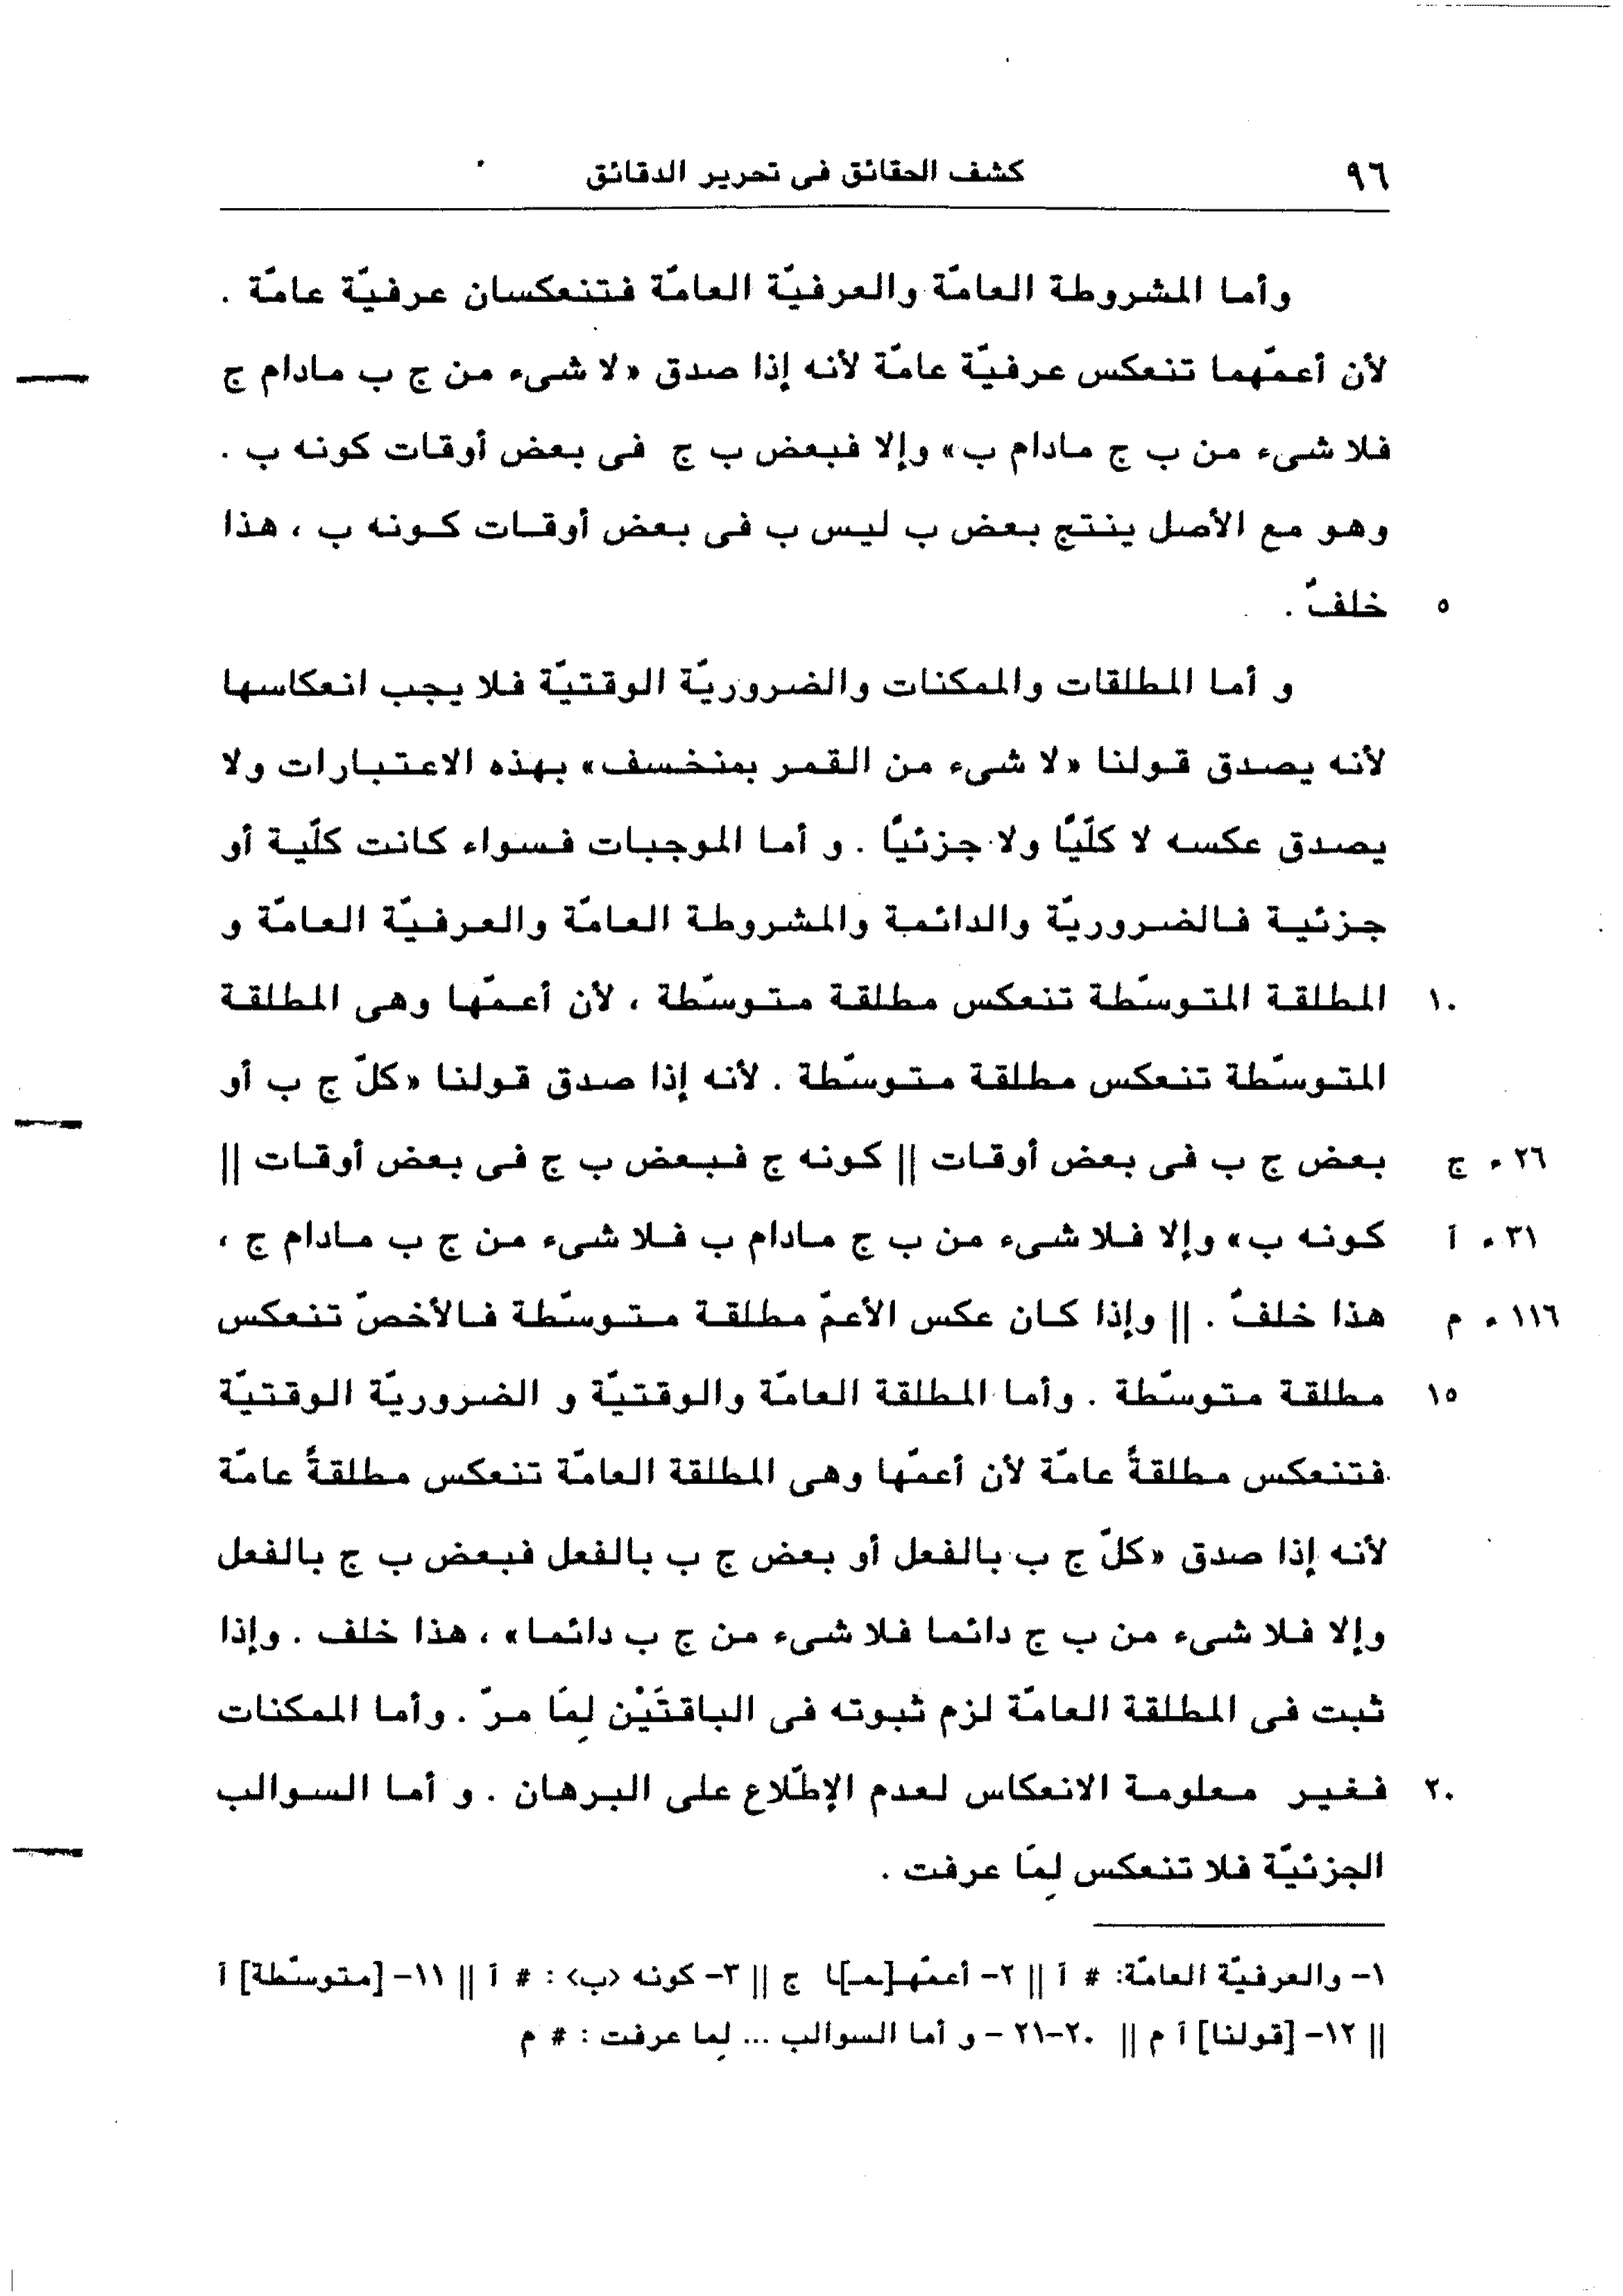 ٩٦ كشف الحقائق فى تحرير الدقائق
وأما المشروطة العامّة والعرفيّة العامّة فتنعكسان عرفيّة عامّة .
لأن أعمّهما تنعكس عرفيّة عامّة لأنه إذا صدق «لا شىء من ج ب مادام ج
فلا شىء من ب ج مادام ب» وإلا فبعض ب ج فى بعض أوقات كونه ب .
وهو مع الأصل ينتج بعض ب ليس ب فى بعض أوقات كونه ب ، هذا
٥ خلفٌ .
و أما المطلقات والممكنات والضروريّة الوقتيّة فلا يجب انعكاسها
لأنه يصدق قولنا «لا شىء من القمر بمنخسف» بهذه الاعتبارات ولا
يصدق عكسه لا كلّيًا ولا جزئيًا . و أما الموجبات فسواء كانت كلّية أو
جزئية فالضروريّة والدائمة والمشروطة العامّة والعرفيّة العامّة و
١٠ المطلقة المتوسّطة تنعكس مطلقة متوسّطة ، لأن أعمّها وهى المطلقة
المتوسّطة تنعكس مطلقة متوسّطة . لأنه إذا صدق قولنا «كلّ ج ب أو
٢٦ ء ج بعض ج ب فى بعض أوقات || كونه ج فبعض ب ج فى بعض أوقات ||
٣١ ء آ كونه ب» وإلا فلا شىء من ب ج مادام ب فلا شىء من ج ب مادام ج ،
١١٦ ء م هذا خلفٌ . || وإذا كان عكس الأعمّ مطلقة متوسّطة فالأخصّ تنعكس
١٥ مطلقة متوسّطة . وأما المطلقة العامّة والوقتيّة و الضروريّة الوقتيّة
فتنعكس مطلقةً عامّة لأن أعمّها وهى المطلقة العامّة تنعكس مطلقةً عامّة
لأنه إذا صدق «كلّ ج ب بالفعل أو بعض ج ب بالفعل فبعض ب ج بالفعل
وإلا فلا شىء من ب ج دائما فلا شىء من ج ب دائما» ، هذا خلف . وإذا
ثبت فى المطلقة العامّة لزم ثبوته فى الباقتَيْن لِمَا مرّ . وأما الممكنات
٢٠ فغير معلومة الانعكاس لعدم الإطّلاع على البرهان . و أما السوالب
الجزئيّة فلا تنعكس لِمَا عرفت .
١- والعرفيّة العامّة: # آ || ٢- أعمّهـ[ـمـ]ـا ج || ٣- كونه <ب> : # آ || ١١- [متوسّطة] آ
|| ١٢- [قولنا] آ م || ٢٠-٢١ - و أما السوالب ... لِما عرفت : # م